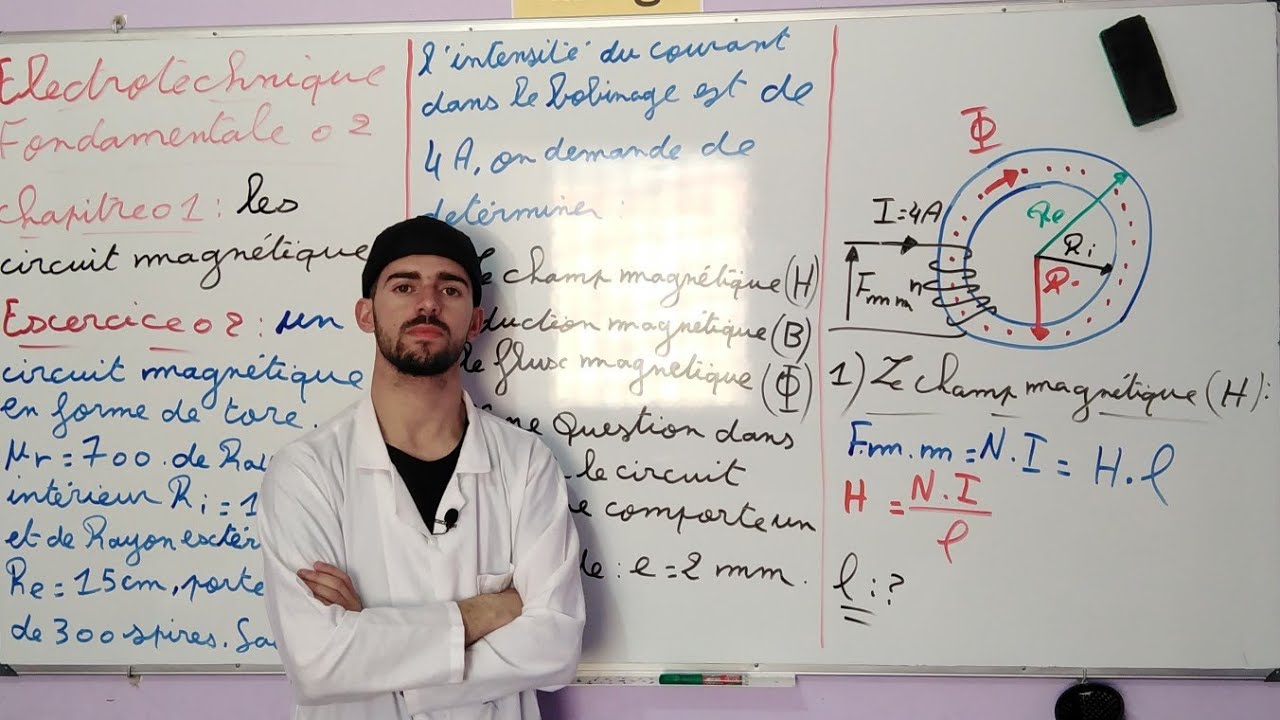 Electrotechnique
Fondamentale 02
chapitre 01 : les
circuit magnétique
Escercice 02 : un
circuit magnétique
en forme de tore.
μr = 700. de
intérieur Ri = 1
et de Rayon
Re = 15cm,
de 300 spires.
l'intensité du courant
dans le bobinage est de
4 A, on demande de
determiner :
champ magnétique (H)
magnétique (B)
le flux magnétique (Φ)
Question dans
le circuit
comporte un
e = 2 mm.
Φ
I = 4A
Re
Ri
R
Fmm
n
1) Le champ magnétique (H) :
F.m.m = N.I = H.l
H = N.I / l
l : ?